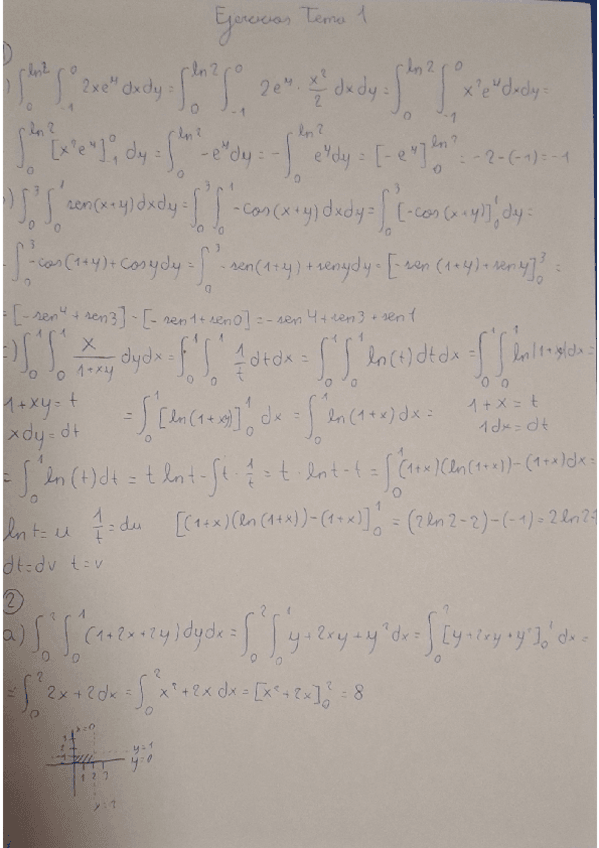 Ejercicios Tema 1
) ∫₀^{ln2} ∫₋₁^0 2xe^y dxdy = ∫₀^{ln2} ∫₋₁^0 2e^y · x²/2 dxdy = ∫₀^{ln2} ∫₋₁^0 x²e^y dxdy =
∫₀^{ln2} [x²e^y]₋₁^0 dy = ∫₀^{ln2} -e^y dy = -∫₀^{ln2} e^y dy = [-e^y]₀^{ln2} = -2-(-1) = -1
) ∫₀^3 ∫₀^1 sen(x+y) dxdy = ∫₀^3 ∫₀^1 -cos(x+y) dxdy = ∫₀^3 [-cos(x+y)]₀^1 dy =
∫₀^3 -cos(1+y) + cosy dy = ∫₀^3 -sen(1+y) + seny dy = [-sen(1+y) + seny]₀^3 =
= [-sen4 + sen3] - [-sen1 + sen0] = -sen4 + sen3 + sen1
) ∫₀^1 ∫₀^1 x/(1+xy) dydx = ∫₀^1 ∫₀^1 1/t dtdx = ∫₀^1 ∫₀^1 ln(t) dtdx = ∫₀^1 ∫₀^1 ln(1+xy) dx =
1+xy = t = ∫₀^1 [ln(1+xy)]₀^1 dx = ∫₀^1 ln(1+x) dx = 1+x = t
xdy = dt 1dx = dt
= ∫₀^1 ln(t) dt = t lnt - ∫t · 1/t = t · lnt - t = ∫₀^1 (1+x)(ln(1+x)) - (1+x) dx =
lnt = u 1/t = du [(1+x)(ln(1+x)) - (1+x)]₀^1 = (2ln2-2) - (-1) = 2ln2-1
dt = dv t = v
②
a) ∫₀^2 ∫₀^1 (1+2x+2y) dydx = ∫₀^2 ∫₀^1 y+2xy+y² dx = ∫₀^2 [y+2xy+y²]₀^1 dx =
= ∫₀^2 2x+2 dx = ∫₀^2 x²+2x dx = [x²+2x]₀^2 = 8
x=0
3
2
1
y=1
y=0
1 2 3